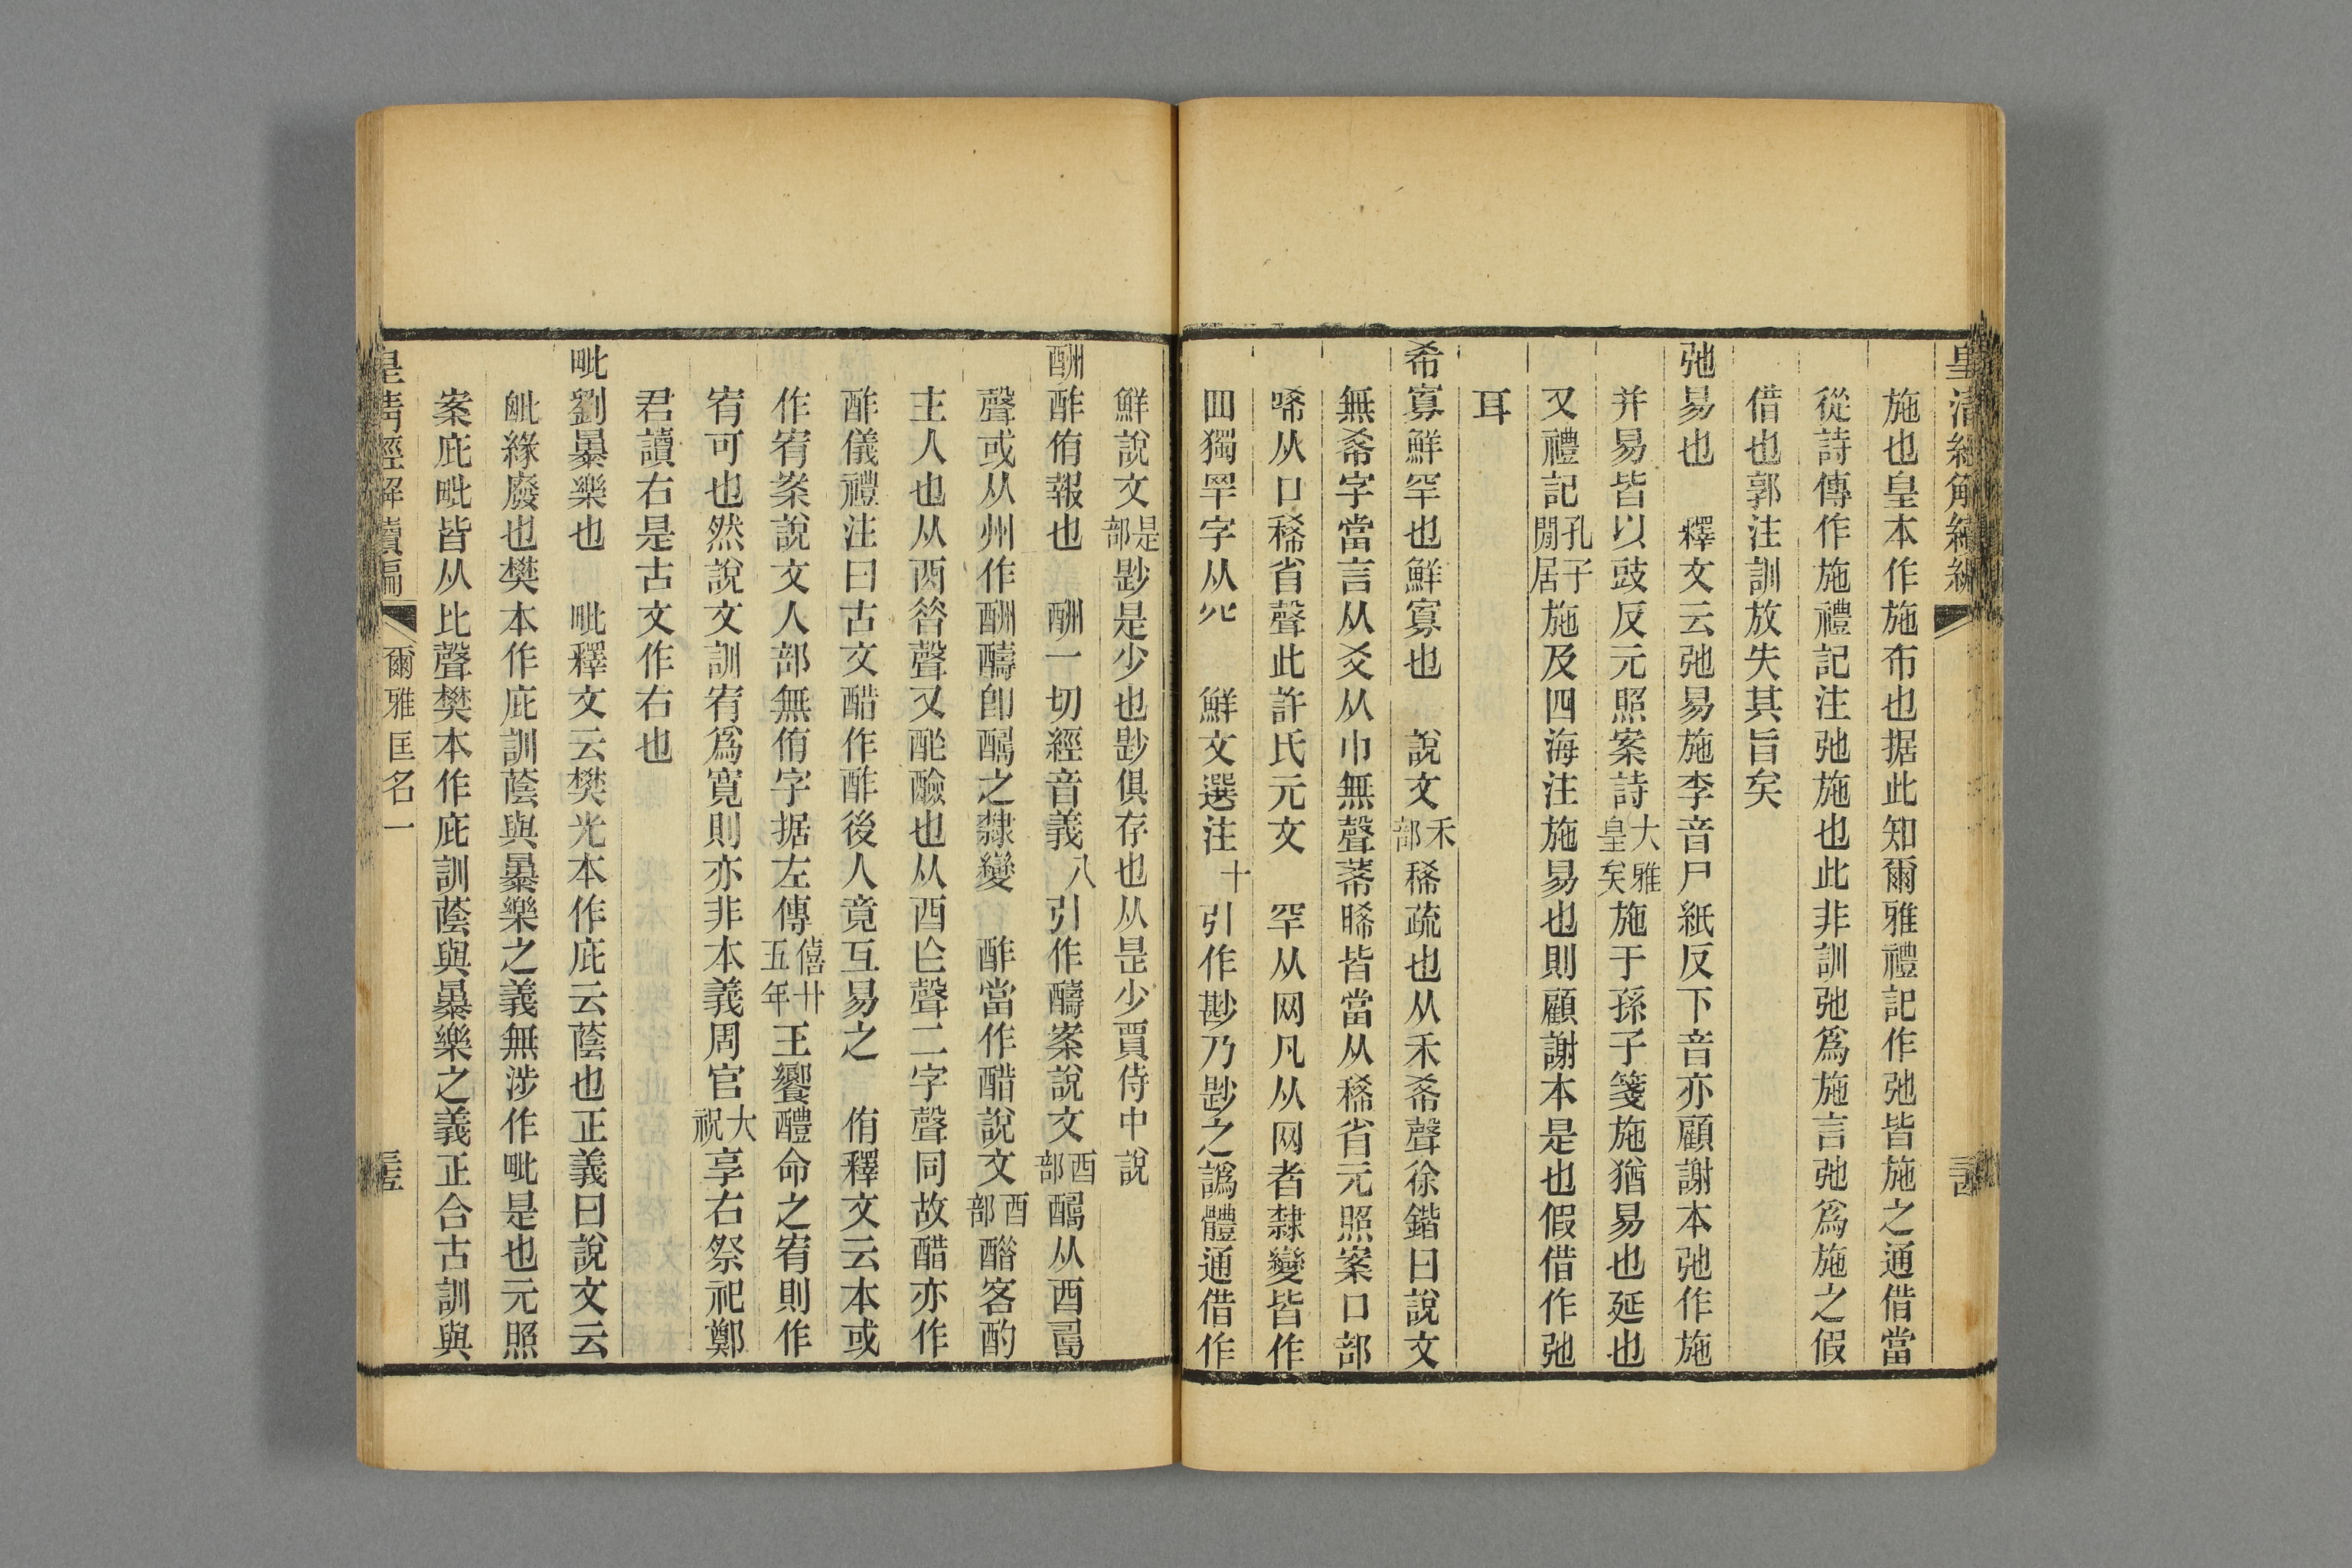 皇清經解續編
施也皇本作施布也据此知爾雅禮記作弛皆施之通借當
從詩傳作施禮記注弛施也此非訓弛爲施言弛爲施之假
借也郭注訓放失其旨矣
弛易也 釋文云弛易施李音尸紙反下音亦顧謝本弛作施
并易皆以豉反元照案詩大雅皇矣施于孫子箋施猶易也延也
又禮記孔子閒居施及四海注施易也則顧謝本是也假借作弛
耳
希寡鮮罕也鮮寡也 說文禾部稀疏也从禾希聲徐鍇曰說文
無希字當言从爻从巾無聲莃晞皆當从稀省元照案口部
唏从口稀省聲此許氏元文 罕从网凡从网者隸變皆作
罒獨罕字从 鮮文選注十引作尟乃尟之譌體通借作
鮮說文是部尟是少也尟俱存也从是少賈侍中說
酬酢侑報也 酬一切經音義八引作醻案說文酉部醻从酉𠷎
聲或从州作酬醻卽醻之隸變 酢當作醋說文酉部醋客酌
主人也从酉昝聲又酢醶也从酉乍聲二字聲同故醋亦作
酢儀禮注曰古文醋作酢後人竟互易之 侑釋文云本或
作宥案說文人部無侑字据左傳僖廿五年王饗醴命之宥則作
宥可也然說文訓宥爲寬則亦非本義周官大祝享右祭祀鄭
君讀右是古文作右也
毗劉㬥樂也 毗釋文云樊光本作庇云蔭也正義曰說文云
㲋緣廢也樊本作庇訓蔭與㬥樂之義無涉作毗是也元照
案庇毗皆从比聲樊本作庇訓蔭與㬥樂之義正合古訓與
皇清經解續編 爾雅匡名一